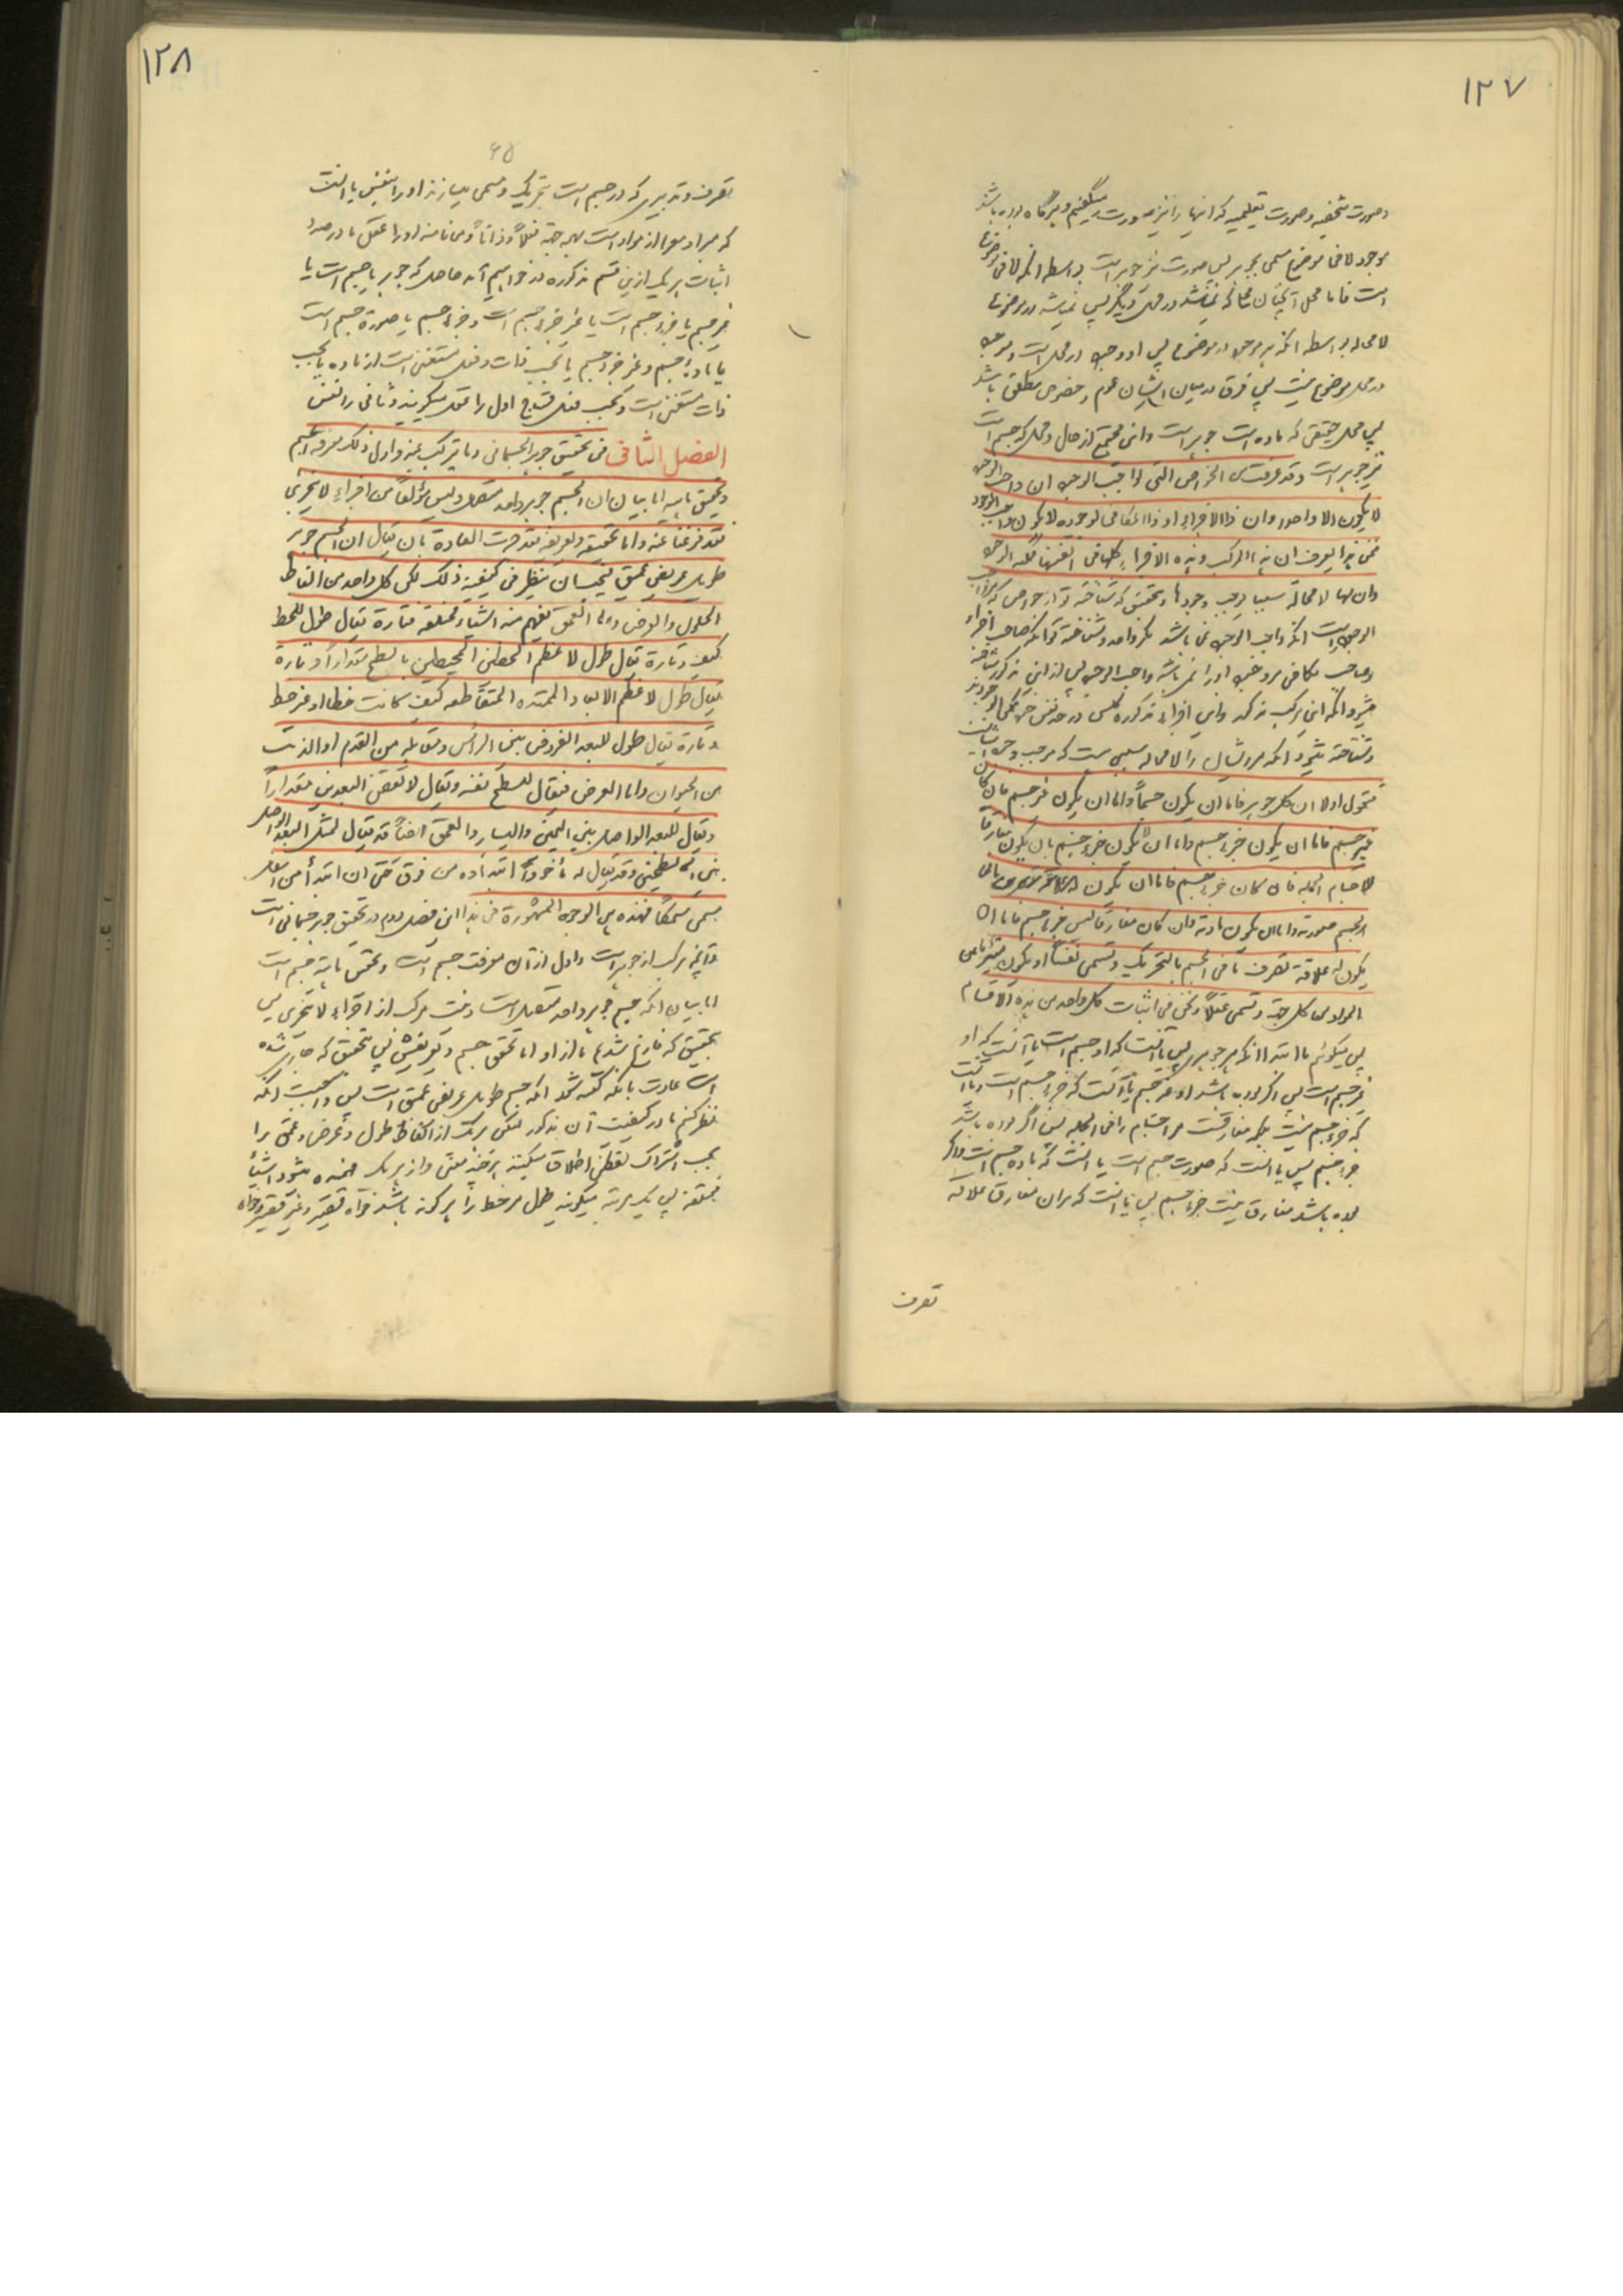 ١٢٧
وصورت شخصیه وصورت تعلیمیه که اینها را نیز صورت میگفتیم وهرگاه بوده باشد
موجود لا فی موضوع مسمی بجوهر پس صورت نیز جوهر است بواسطه آنکه لا فی موضوع
است فاما محل آنچنان محل که نمیباشد در محل دیگر پس نمیباشد در موضوع
لا محاله بواسطه آنکه هر موجود در موضوع پس او موجود در محل است وهر موجود
در محل در موضوع نیست پس فرق در میان ایشان عموم وخصوص مطلق باشد
پس محل حقیقی که ماده است جوهر است واین مجتمع از حال ومحل که جسم است
نیز جوهر است وقد عرفت من الخواص التی لواجب الوجود ان واجب الوجود
لا یکون الا واحدا وان ذا الاجزاء او ذا المکافی لوجوده لا یکون واجب الوجود
فمن هذا یعرف ان هذا المرکب وهذه الاجزاء کلها فی انفسها ممکنه الوجود
وان لها لا محالة سببا یوجب وجودها وبتحقیق که شناخته تو از خواص که مر واجب
الوجود است آنکه واجب الوجود نمی باشد مگر واحد وشناخته تو آنکه صاحب اجزاء
وصاحب مکافی مر وجود او را نمی باشد واجب الوجود پس از این مذکور شناخته
میشود آنکه این مرکب مذکور واین اجزاء مذکوره کلش در حد نفس خود ممکن الوجودند
وشناخته میشود آنکه مر ایشان را لا محاله سببی هست که موجب وجود ایشانست
فنقول اولا ان کل جوهر فاما ان یکون جسماً واما ان یکون غیر جسم فان کان
غیر جسم فاما ان یکون جزء جسم واما ان لا یکون جزء جسم بان یکون مفارقا
للاجسام الجمله فان کان جزء جسم فاما ان یکون
الجسم صورته واما ان یکون مادته وان کان مفارقا لیس جزء جسم فاما ان
یکون له علاقة تصرف ما فی الجسم بالتحریک وتسمی نفساً او یکون متبرئا عن
المواد من کل جهة وتسمی عقلاً ونحن فی اثبات کل واحد من هذه الاقسام
پس میگوئیم ما ابتدا آنکه هر جوهری پس یا آنست که او جسم است یا آنست که او
غیر جسم است پس اگر بوده باشد او غیر جسم یا آنست که جزء جسم است ویا آنست
که جزء جسم نیست بلکه مفارقست مر اجسام را فی الجمله پس اگر بوده باشد
جزء جسم پس یا آنست که صورت جسم است یا آنست که ماده جسم است واگر
بوده باشد مفارق نیست جزء جسم پس یا آنست که مر آن مفارق علاقه
تصرف
١٢٨
٦٥
تصرف وتدبیری که در جسم است بتحریک ومسمی میسازند او را بنفس یا آنست
که مبرا ومعرا از مواد است بهر جهة فعلاً وذاتاً ومی نامند او را عقل ما در صدد
اثبات هر یک از این قسم مذکوره در خواهیم آمد حاصل که جوهر یا جسم است یا
غیر جسم یا جزء جسم است یا غیر جزء جسم است وجزء جسم یا صورة جسم است
یا ماده جسم وغیر جزء جسم یا بحسب ذات وفعل مستغنی است از ماده یا بحسب
ذات مستغنی است وبحسب فعل محتاج اول را عقل میگویند وثانی را نفس
الفصل الثانی فی تحقیق جوهر الجسمانی وما یترکب عنه واول ذلک معرفة الجسم
وتحقیق ماهیته اما بیان ان الجسم جوهر واحد متصل ولیس مؤلفاً من اجزاء لا یتجزی
فقد فرغنا عنه واما تحقیقه وتعریفه فقد جرت العادة بان یقال ان الجسم جوهر
طویل عریض عمیق فیجب ان ینظر فی کیفیة ذلک لکن کل واحد من الفاظ
الطول والعرض والعمق یفهم منه اشیاء مختلفه فتارة یقال طول للخط
کیف وتارة یقال طول لاعظم الخطین المحیطین بالسطح مقداراً وتارة
یقال طول لاعظم الابعاد الممتدة المتقاطعه کیف کانت خطا او غیر خط
وتارة یقال طول للبعد المفروض بین الراس ومقابله من القدم او الذنب
من الحیوان واما العرض فیقال للسطح نفسه ویقال لانقص البعدین مقداراً
ویقال للبعد الواصل بین الیمین والیسار والعمق ایضاً قد یقال لمثل البعد الواصل
بین السطحین وقد یقال له مأخوذاً ابتداؤه من فوق حتی ان ابتدأ من اسفل
یسمی سمکاً فهذه هی الوجوه المشهورة فی هذا این فصل دوم در تحقیق جوهر جسمانی است
وآنچه مرکب از جوهر است واول از آن معرفت جسم است وتحقیق ماهیة جسم است
اما بیان آنکه جسم جوهر واحد متصل است ونیست مرکب از اجزاء لا یتجزی پس
بتحقیق که فارغ شدیم ما از او اما تحقیق جسم وتعریفش پس بتحقیق که جاری شده
است عادت بانکه گفته شود آنکه جسم طویل عریض عمیق است پس واجبست آنکه
نظر کنیم ما در کیفیت آن مذکور لکن هر یک از الفاظ طول وعرض وعمق را
بحسب اشتراک لفظی اطلاق میکنند بر چند معنی واز هر یک فهمیده میشود اشیاء
مختلفه پس یک مرتبه میگویند طول مر خط را هر گونه باشد خواه قصیر وغیر قصیر وخواه